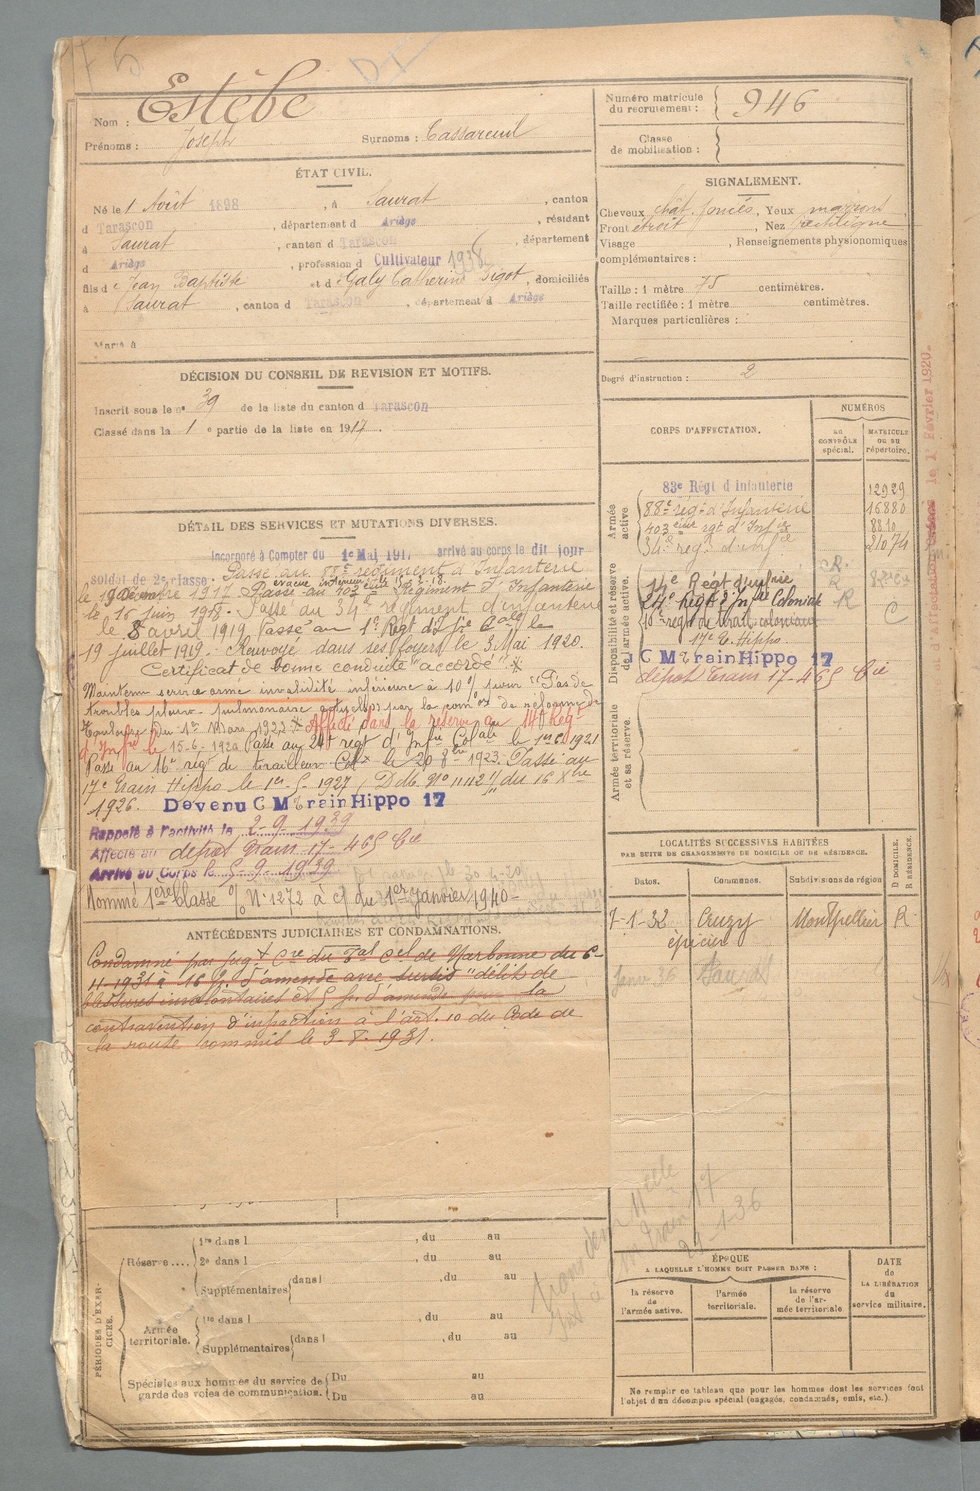 Estèbe
Nom :
Prénoms : Joseph Surnoms : Cassareuil
Numéro matricule du recrutement : 946
Classe de mobilisation :
ÉTAT CIVIL.
Né le 1 Août 1898, à Saurat, canton
d Tarascon, département d Ariège, résidant
à Saurat, canton d Tarascon, département
d Ariège, profession d Cultivateur
fils de Jean Baptiste et de Galy Catherine Sigot, domiciliés
à Saurat, canton d Tarascon, département d Ariège
Marié à
DÉCISION DU CONSEIL DE REVISION ET MOTIFS.
Inscrit sous le no 39 de la liste du canton d Tarascon
Classé dans la 1e partie de la liste en 1917.
DÉTAIL DES SERVICES ET MUTATIONS DIVERSES.
Incorporé à Compter du 1er Mai 1917 arrivé au corps le dit jour
soldat de 2e classe. Passé au 88e régiment d'Infanterie
le 19 Décembre 1917. Passé au 403ème Régiment d'Infanterie
le 16 juin 1918. Passé au 34e régiment d'infanterie
le 8 avril 1919. Passé au 1er Régt d'Infie Cale le
19 juillet 1919. Renvoyé dans ses foyers le 3 Mai 1920.
Certificat de bonne conduite "accordé"
Maintenu service armé invalidité inférieure à 10% pour "Pas de
troubles pleuro-pulmonaires actuels par la comon de réforme de
Toulouse du 1er Mars 1922 Affecté dans la réserve au 14e Régt
d'Infie le 15-6-1920 Passé au 24e régt d'Infie Colale le 1er 6.1921
Passé au 16e régt de tirailleurs Colx le 20 8bre 1923. Passé au
17e Train Hippo le 1er 5-1927 (D.M. No 11112 du 16 Xbre
1926. Devenu C M Train Hippo 17
Rappelé à l'activité le 2-9-1939
Affecté au dépôt Train 17-465 Cie
Arrivé au Corps le 5-9-1939
Nommé 1ere Classe No 1272 à c/ du 1er janvier 1940
ANTÉCÉDENTS JUDICIAIRES ET CONDAMNATIONS.
Condamné par jugt Cre du Tal Cel de Narbonne du 6-
11-1931 à 16 fr. d'amende avec sursis "délit de
blessures involontaires et 5 fr. d'amende pour la
contravention d'infraction à l'art. 10 du Code de
la route commis le 3-8-1931.
SIGNALEMENT.
Cheveux chât. foncés, Yeux marrons
Front étroit, Nez rectiligne
Visage, Renseignements physionomiques
complémentaires :
Taille : 1 mètre 75 centimètres.
Taille rectifiée : 1 mètre centimètres.
Marques particulières :
Degré d'instruction : 2
CORPS D'AFFECTATION.
NUMÉROS
AU CONTRÔLE spécial.
MATRICULE OU AU répertoire.
Armée active.
83e Régt d'Infanterie 12929
88e régt d'Infanterie 16880
403ème rgt d'Infie 8810
34e régt d'infie 21074
Disponibilité et réserve de l'armée active.
14e Régt d'infie R
24e Régt d'Infie Coloniale R C
16e régt de tirail. coloniaux
17e T. Hippo.
C M Train Hippo 17
dépôt Train 17-465 Cie
Armée territoriale et sa réserve.
LOCALITÉS SUCCESSIVES HABITÉES
PAR SUITE DE CHANGEMENTS DE DOMICILE OU DE RÉSIDENCE.
Dates. Communes. Subdivisions de région D DOMICILE. R RÉSIDENCE
7-1-32 Cruzy Montpellier R
épicier
Janv 36 Saurat
PÉRIODES D'EXERCICE.
Réserve....
1re dans l , du au
2e dans l , du au
Supplémentaires dans l , du au
Armée territoriale.
1re dans l , du au
Supplémentaires dans l , du au
Spéciales aux hommes du service de garde des voies de communication.
Du au
Du au
Train 17
29-1-36
ÉPOQUE
A LAQUELLE L'HOMME DOIT PASSER DANS :
la réserve de l'armée active.
l'armée territoriale.
la réserve de l'armée territoriale.
DATE de LA LIBÉRATION du service militaire.
Ne remplir ce tableau que pour les hommes dont les services font
l'objet d'un décompte spécial (engagés, condamnés, omis, etc.).